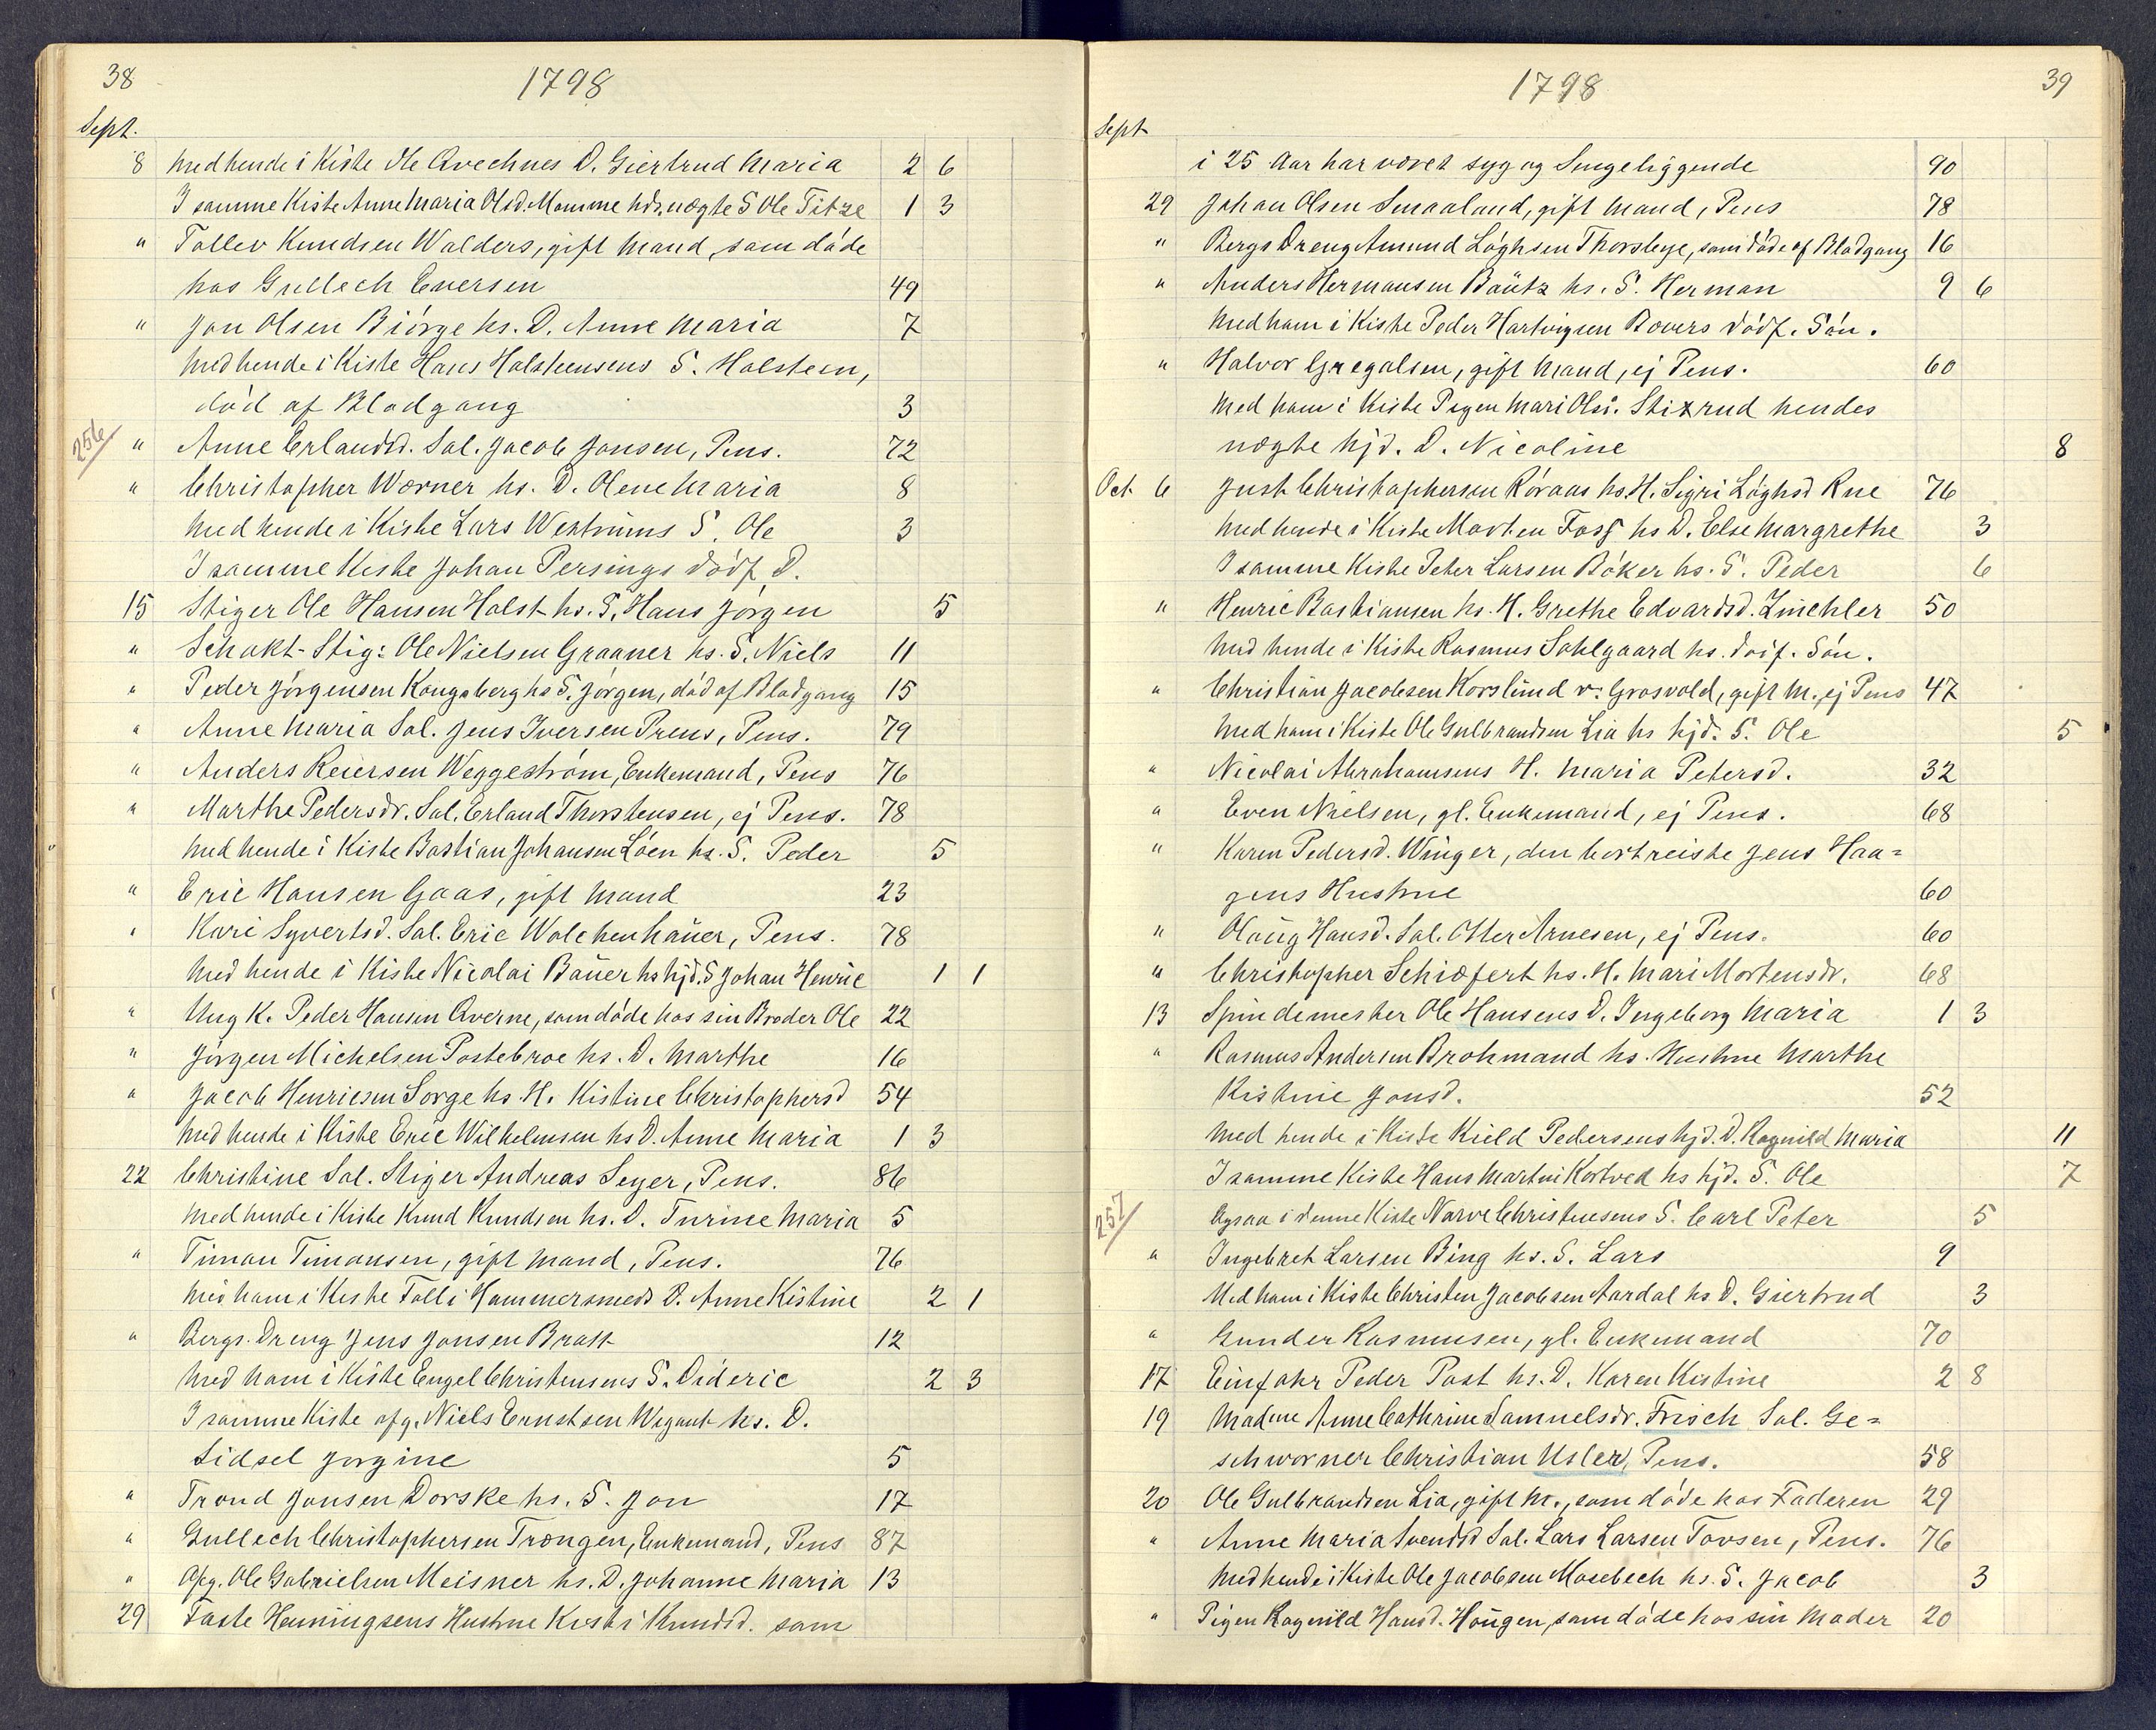 38
1798
Sept.
8 med hende i Kiste Ole Qvechnes D. Giertrud Maria 2 6
I samme Kiste Anne Maria Olsd. Momme hds. uægte S Ole Titze 1 3
" Tollev Knudsen Walders, gift Mand, som døde
hos Gullech Eversen 49
" Jon Olsen Biörge hs. D. Anne Maria 7
med hende i Kiste Hans Holsteensens S. Holstein,
död af Blodgang 3
256/ " Anne Erlandsd. Sal. Jacob Jonsen, Pens. 72
" Christopher Wærner hs. D. Olene Maria 8
med hende i Kiste Lars Westrums S. Ole 3
I samme Kiste Johan Persings dödf. D.
15 Stiger Ole Hansen Holst hs. S. Hans Jörgen 5
" Schakt-Stig: Ole Nielsen Graaner hs. S. Niels 11
" Peder Jörgensen Kongsberg hs S. Jörgen, död af Blodgang 15
" Anne Maria Sal. Jens Iversen Preus, Pens. 79
" Anders Reiersen Weggeström, Enkemand, Pens 76
" Marthe Pedersdr. Sal. Erland Thorstensen, ej Pens. 78
med hende i Kiste Bastian Johansen Löen hs. S. Peder 5
" Eric Hansen Gaas, gift Mand 23
" Kari Syvertsd. Sal. Eric Walchenhaüer, Pens. 78
med hende i Kiste Nicolai Baüer hs hjd. S Johan Henric 1 1
" Ung K. Peder Hansen Qverne, som döde hos sin Broder Ole 22
" Jörgen Michelsen Postebroe hs. D. Marthe 16
" Jacob Henricsen Sorge hs. H. Kistine Christophersd 54
med hende i Kiste Eric Wilhelmsen hs D. Anne Maria 1 3
22 Christine Sal. Stiger Andreas Seyer, Pens. 86
med hende i Kiste Knud Knudsen hs. D. Turine Maria 5
" Timan Timansen, gift Mand, Pens. 76
med ham i Kiste Tolli Hammersmeds D. Anne Kistine 2 1
" Bergs. Dreng Jens Jonsen Bratt 12
med ham i Kiste Engel Christensens S. Dideric 2 3
I samme Kiste afg. Niels Ernstsen Wegant hs. D.
Sidsel Jorgine 5
" Trond Jonsen Dorske hs. S. Jon 17
" Gullech Christophersen Trængen, Enkemand, Pens 87
" Afg. Ole Gabrielsen Meisner hs. D. Johanne Maria 13
29 Taste Henningsens Hustrue Kisti Knudsd. som
1798
39
Sept
i 25 Aar har været syg og Sengeliggende 90
29 Johan Olsen Smaaland, gift Mand, Pens 78
" Bergs Dreng Amund Löghsen Thorsbye, som döde af Blodgang 16
" Anders Hermansen Baütz hs. S. Herman 9 6
med ham i Kiste Peder Hartvigsen Bovers dödf. Sön.
" Halvor Gregalsen, gift Mand, ej Pens. 60
med ham i Kiste Pigen Mari Olsd. Stixrud hendes
uægte hjd. D. Nicoline 8
Oct 6 Just Christophersen Röraas hs. H. Sigri Löghsd Rue 76
med hende i Kiste Morten Foss hs D. Else Margrethe 3
I samme Kiste Peter Larsen Böker hs. S. Peder 6
" Henric Bastiansen hs. H. Grethe Edvardsd. Zinchler 50
med hende i Kiste Rasmus Sahlgaard hs. dödf. Sön.
" Christian Jacobsen Korslund v: Grosvold, gift M., ej Pens 47
med ham i Kiste Ole Gulbrandsen Lia hs hjd. S. Ole 5
" Nicolai Abrahamsens H. Maria Petersd. 32
" Even Nielsen, gl. Enkemand, ej Pens. 68
" Karen Pedersd. Winger, den bortreiste Jens Haa=
gens Hustrue 60
" Olaüg Hansd. Sal. Otter Arnesen, ej Pens. 60
" Christopher Schiæfert hs. H. Mari Mortensdr. 68
13 Spindemester Ole Hansens D. Ingeborg Maria 1 3
" Rasmus Andersen Brohmand hs. Hustrue Marthe
Kistine Jonsd. 52
med hende i Kiste Kield Pedersens hjd. D. Ragnild Maria 11
I samme Kiste Hans Martin Kortved hs hjd. S. Ole 7
257/ Ogsaa i denne Kiste Narve Christensens S. Carl Peter 5
" Ingebret Larsen Bing hs. S. Lars 9
Med ham i Kiste Christen Jacobsen Aardal hs. D. Giertrud 3
" Gunder Rasmusen, gl. Enkemand 70
17 Einfahr Peder Post hs. D. Karen Kistine 2 8
19 Madme Anne Cathrine Samuelsdr. Frisch Sal. Ge=
schworner Christian Usler, Pens. 58
20 Ole Gulbrandsen Lia, gift M., som döde hos Faderen 29
" Anne Maria Svendsd Sal. Lars Larsen Tovsen, Pens. 76
med hende i Kiste Ole Jacobsen Mosebech hs. S. Jacob 3
" Pigen Ragnild Hansd. Haügen, som döde hos sin Moder 20